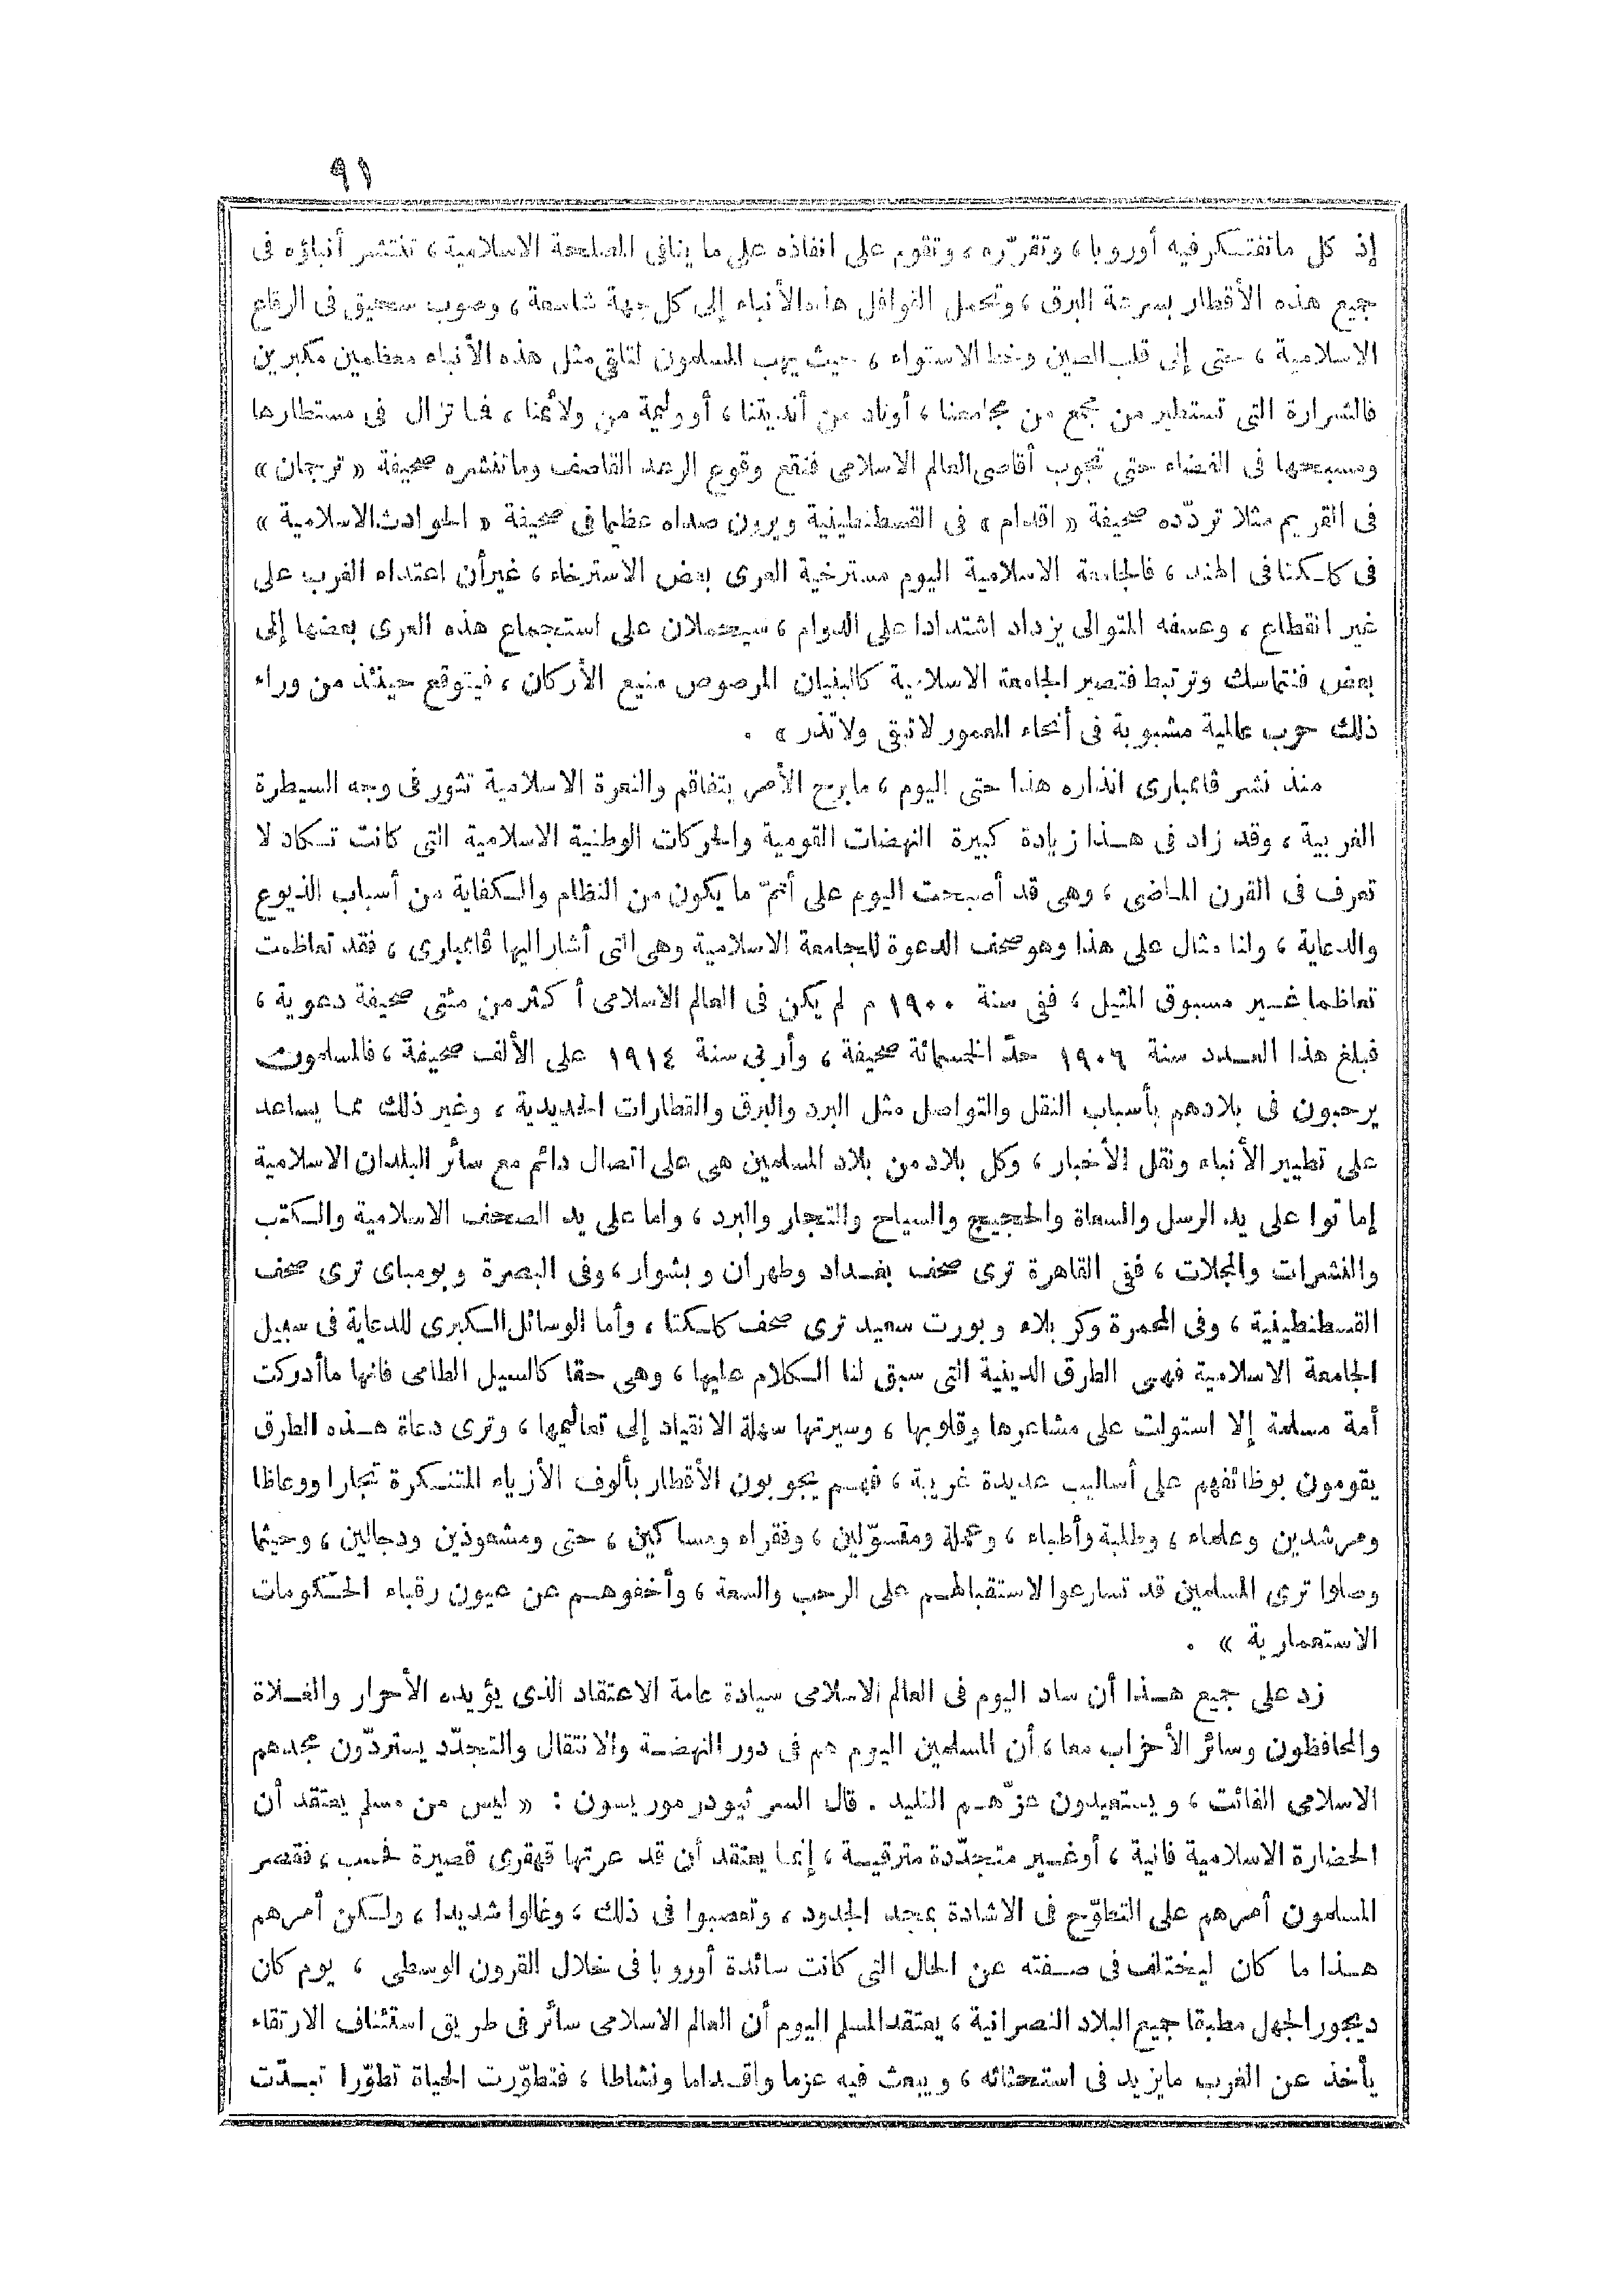 ٩١
إذ كل ما تفتكر فيه أوروبا، وتقرّره، وتقوم على انفاذه على ما ينافى المصلحة الاسلامية، تنتشر أنباؤه فى
جميع هذه الأقطار بسرعة البرق، وتحمل القوافل هذه الأنباء إلى كل جهة شاسعة، وصوب سحيق فى الرقاع
الاسلامية، حتى إلى قلب الصين وخط الاستواء، حيث يهب المسلمون لتلقى مثل هذه الأنباء معظمين مكبرين
فالشرارة التى تستطير من مجمع من مجامعنا، أوناد من أنديتنا، أووليمة من ولائمنا، فما تزال فى مستطارها
ومسبحها فى الفضاء حتى تجوب أقاصى العالم الاسلامى فتقع وقوع الرعد القاصف وماتنشره صحيفة « ترجمان »
فى القريم مثلا تردّده صحيفة « اقدام » فى القسطنطينية ويرون صداه عظيما فى صحيفة « الحوادث الاسلامية »
فى كلكتا فى الهند، فالجامعة الاسلامية اليوم مسترخية العرى بعض الاسترخاء، غيرأن اعتداء الغرب على
غير انقطاع، وعسفه المتوالى يزداد اشتدادا على الدوام، سيحملان على استجماع هذه العرى بعضها إلى
بعض فتتماسك وترتبط فتصير الجامعة الاسلامية كالبنيان المرصوص منيع الأركان، فيتوقع حينئذ من وراء
ذلك حرب عالمية مشبوبة فى أنحاء المعمور لاتبقى ولاتذر » .
منذ نشر ڤامبارى انذاره هذا حتى اليوم، مابرح الأمر يتفاقم والنعرة الاسلامية تثور فى وجه السيطرة
الغربية، وقد زاد فى هذا زيادة كبيرة النهضات القومية والحركات الوطنية الاسلامية التى كانت تكاد لا
تعرف فى القرن الماضى، وهى قد أصبحت اليوم على أتمّ ما يكون من النظام والكفاية من أسباب الذيوع
والدعاية، ولنا مثال على هذا وهو صحف الدعوة للجامعة الاسلامية وهى التى أشار اليها ڤامبارى، فقد تعاظمت
تعاظما غير مسبوق المثيل، ففى سنة ١٩٠٠ م لم يكن فى العالم الاسلامى أكثر من مئتى صحيفة دعوية،
فبلغ هذا العدد سنة ١٩٠٦ حدّ الخمسمائة صحيفة، وأربى سنة ١٩١٤ على الألف صحيفة، فالمسلمون
يرحبون فى بلادهم بأسباب النقل والتواصل مثل البرد والبرق والقطارات الحديدية، وغير ذلك مما يساعد
على تطيير الأنباء ونقل الأخبار، وكل بلاد من بلاد المسلمين هى على اتصال دائم مع سائر البلدان الاسلامية
إما توا على يد الرسل والسعاة والحجيج والسياح والتجار والبرد، واما على يد الصحف الاسلامية والكتب
والنشرات والمجلات، ففى القاهرة ترى صحف بغداد وطهران وبشوار، وفى البصرة وبومباى ترى صحف
القسطنطينية، وفى المحمرة وكربلاء وبورت سعيد ترى صحف كلكتا، وأما الوسائل الكبرى للدعاية فى سبيل
الجامعة الاسلامية فهى الطرق الدينية التى سبق لنا الكلام عليها، وهى حقا كالسيل الطامى فانها ماأدركت
أمة مسلمة إلا استولت على مشاعرها وقلوبها، وسيرتها سهلة الانقياد إلى تعاليمها، وترى دعاة هذه الطرق
يقومون بوظائفهم على أساليب عديدة غريبة، فهم يجوبون الأقطار بألوف الأزياء المتنكرة تجارا ووعاظا
ومرشدين وعلماء، وطلبة وأطباء، وعملة ومتسوّلين، وفقراء ومساكين، حتى ومشعوذين ودجالين، وحيثما
وصلوا ترى المسلمين قد تسارعوا لاستقبالهم على الرحب والسعة، وأخفوهم عن عيون رقباء الحكومات
الاستعمارية » .
زد على جميع هذا أن ساد اليوم فى العالم الاسلامى سيادة عامة الاعتقاد الذى يؤيده الأحرار والغلاة
والمحافظون وسائر الأحزاب معا، أن المسلمين اليوم هم فى دور النهضة والانتقال والتجدّد يستردّون مجدهم
الاسلامى الفائت، ويستعيدون عزّهم التليد . قال السر ثيودر موريسون : « ليس من مسلم يعتقد أن
الحضارة الاسلامية فانية، أوغير متجدّدة مترقية، إنما يعتقد أن قد عرتها قهقرى قصيرة فحسب، فقصر
المسلمون أمرهم على التطوّح فى الاشادة بمجد الجدود، وتعصبوا فى ذلك، وغالوا شديدا، ولكن أمرهم
هذا ما كان ليختلف فى صفته عن الحال التى كانت سائدة أوروبا فى خلال القرون الوسطى، يوم كان
ديجور الجهل مطبقا جميع البلاد النصرانية، يعتقد المسلم اليوم أن العالم الاسلامى سائر فى طريق استئناف الارتقاء
يأخذ عن الغرب مايزيد فى استحثاثه، ويبعث فيه عزما واقداما ونشاطا، فتطوّرت الحياة تطوّرا تبدّت